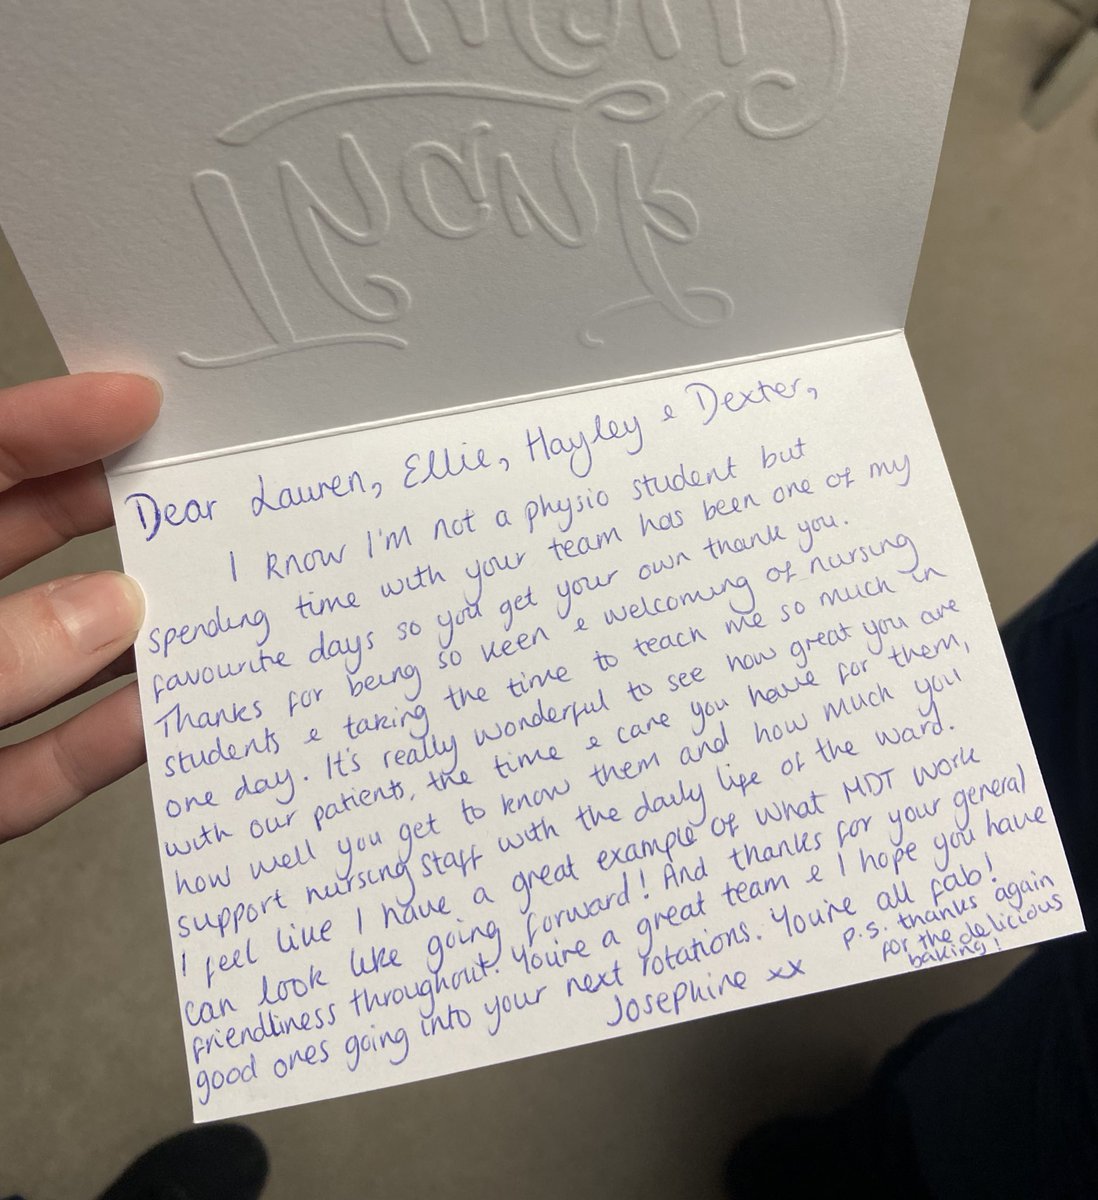 Thank
You
Dear Lauren, Ellie, Hayley & Dexter,
I know I'm not a physio student but
spending time with your team has been one of my
favourite days so you get your own thank you.
Thanks for being so keen & welcoming of nursing
students & taking the time to teach me so much in
one day. It's really wonderful to see how great you are
with our patients, the time & care you have for them,
how well you get to know them and how much you
support nursing staff with the daily life of the ward.
I feel like I have a great example of what MDT work
can look like going forward! And thanks for your general
friendliness throughout. You're a great team & I hope you have
good ones going into your next rotations. You're all fab!
Josephine xx
P.S. thanks again
for the delicious
baking!